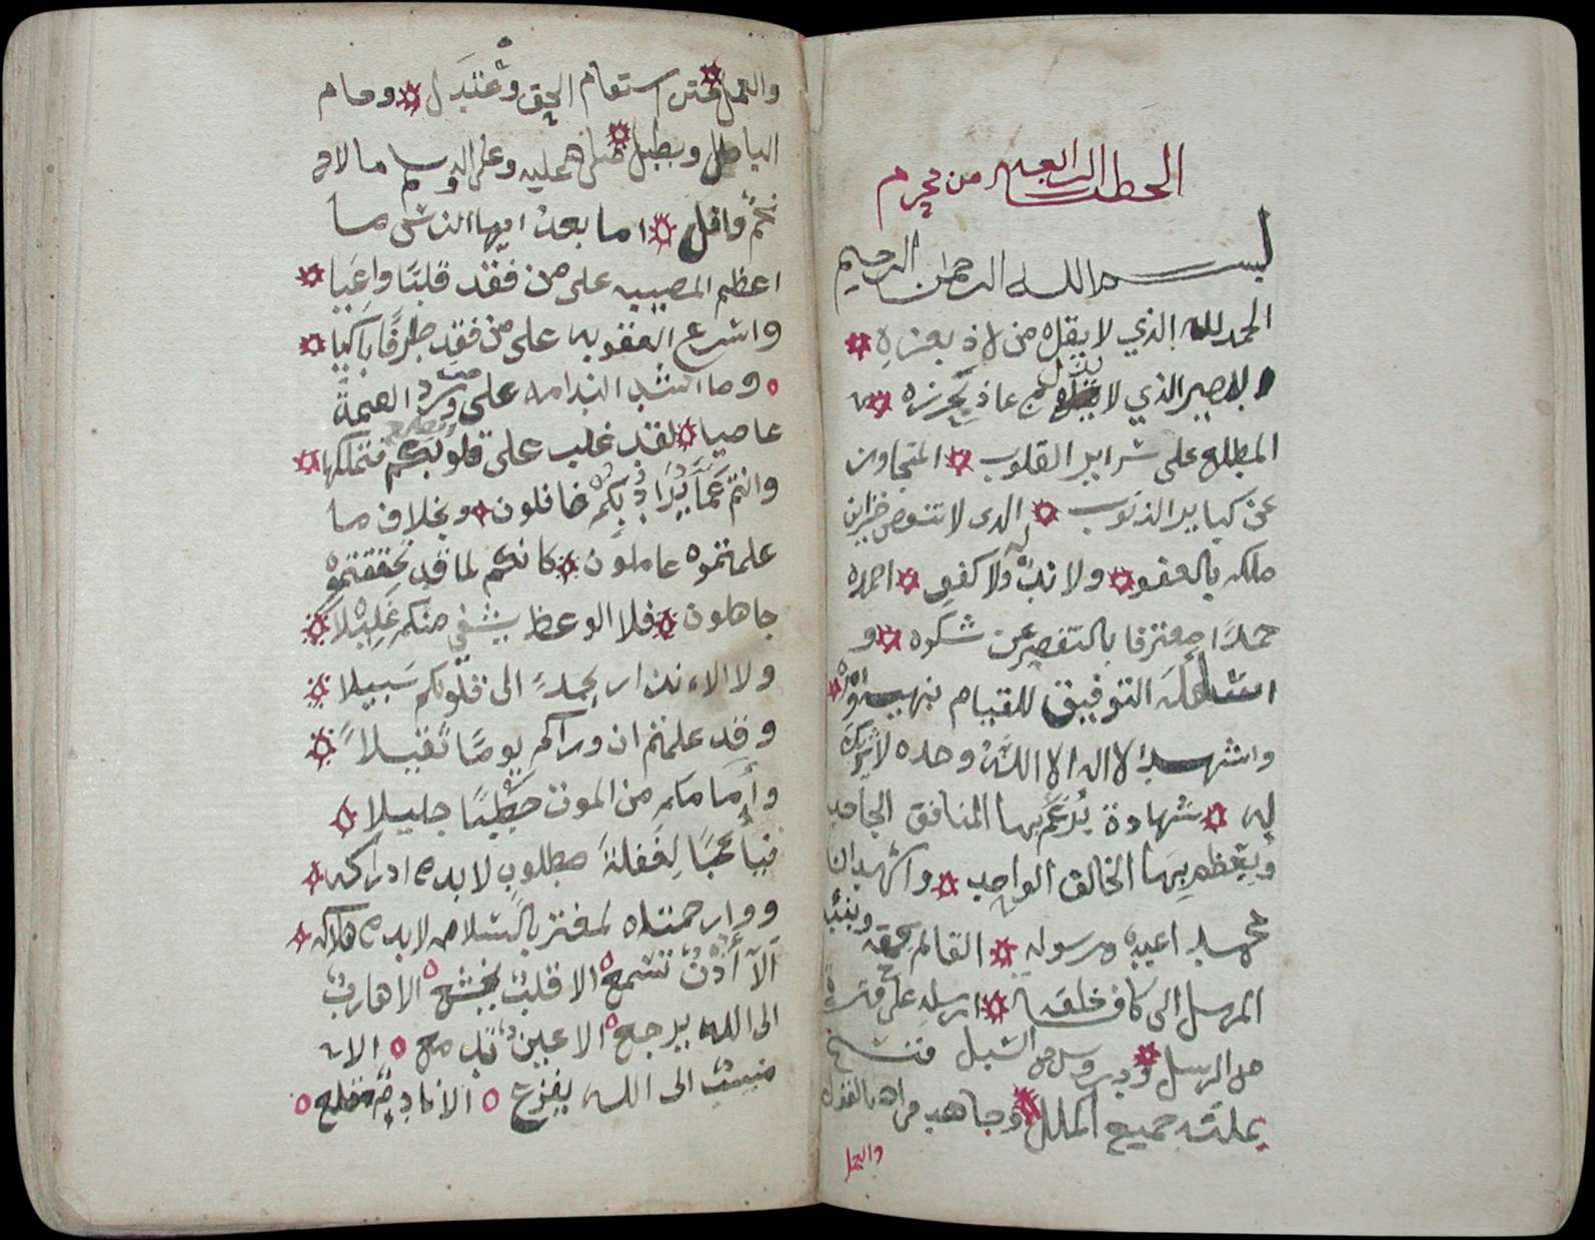 الخطبة الرابعة من محرم
بسم الله الرحمن الرحيم
الحمد لله الذي لا يقل من لاذ بعزه
البصير الذي لا من عاذ بحرزه
المطلع على سراير القلوب المتجاوز
عن كباير الذنوب الدى لا تنقص خزاين
ملكه بالعفو ولا ند له ولا كفو احمده
حمدًا معترفا بالتقصير عن شكره و
اسأله التوفيق للقيام بنهيه وامره
واشهد ان لا اله الا الله وحده لا شريك
له شهادة يُرغم بها المنافق الجاحد
ويعظم بها الخالق الواحد واشهد ان
محمد اعبده ورسوله القائم بحقه
المرسل الى كافة خلقه ارسله على فترة
من الرسل ودروس من السبل فنسخ
بملته جميع الملل وجاهد في الله بالقول
والعمل
والعمل حتى استقام الحق واعتدل وحام
الباطل وبطل صلى الله عليه وعلى اله وسلم ما لاح
نجم وافل اما بعد ايها الناس ما
اعظم المصيبه على من فقد قلبًا واعيا
واسرع العقوبه على من فقد طرفًا باكيا
وما اشد الندامه على من ورد القيمة
عاصيا لقد غلب على قلوبكم فتملكها
وانتم عما يُرَادُ بِكُم غافلون وبخلاف ما
علمتموه عاملون كانكم لما قد تحققتموه
جاهلون فلا الوعظ يشفي منكم غليلا
ولا الانذار يجد الى قلوبكم سبيلا
وقد علمتم ان وراكم يومًا ثقيلاً
وأمامكم من الموت خطبًا جليلا
فيا عجبًا لغفلة مطلوب لا بد من ادراكه
ووارحمتاه لمغتر بالسلامه لا بد من هلاكه
ألا أُذُنٌ تسمع الا قلبٌ يخشع الا هاربٌ
الى الله يرجع الا عينٌ تدمع الا
منيبٌ الى الله يفزع الا نادمٌ مقلع